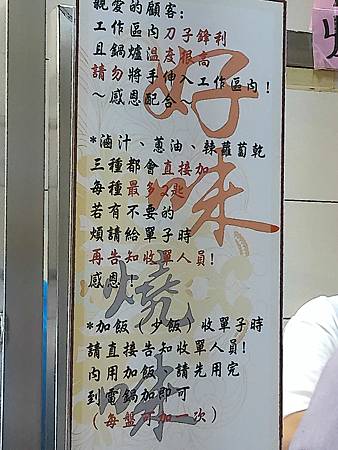 親愛的顧客:
工作區內刀子鋒利
且鍋爐溫度很高
請勿將手伸入工作區內!
~感恩配合~
*滷汁、蔥油、辣蘿蔔乾
三種都會直接加
每種最多2匙
若有不要的
煩請給單子時
再告知收單人員!
感恩!
*加飯(少飯)收單子時
請直接告知收單人員!
內用加飯, 請先用完
到電鍋加即可
(每盤可加一次)
好味燒味